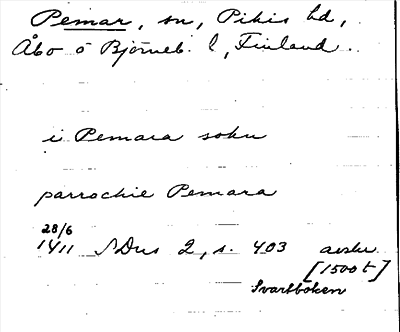 Pemar, sn, Pikis hd,
Åbo o Björneb. l, Finland.
i Pemara sokn
parrochie Pemara
28/6
1411 SDns 2, s. 403 avskr.
[1500t]
Svartboken